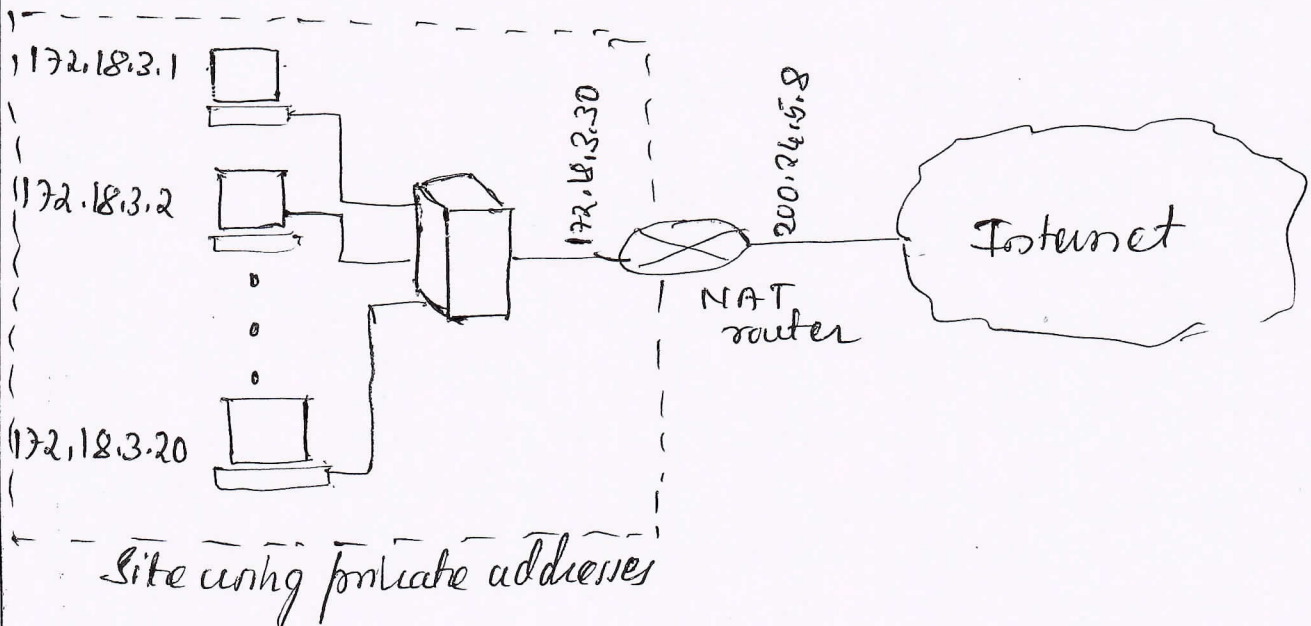 172.18.3.1
172.18.3.2
172.18.3.20
172.18.3.30
200.24.5.8
NAT
router
Internet
Site using private addresses